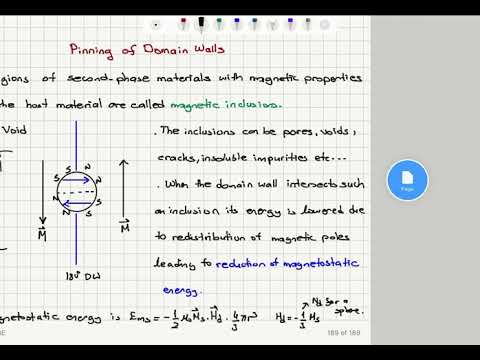 Pinning of Domain Walls
gions of second-phase materials with magnetic properties
the host material are called magnetic inclusion.
Void
S N
S N
N S
N S
M
M
180° DW
. The inclusions can be pores, voids,
cracks, insoluble impurities etc...
. When the domain wall intersects such
an inclusion its energy is lowered due
to redistribution of magnetic poles
leading to reduction of magnetostatic
energy.
Nd for a
sphere.
netostatic energy is Ems = -1/2 μ0 Ms . Hd . 4/3 πr³ Hd = -1/3 Ms
Page
189 of 189